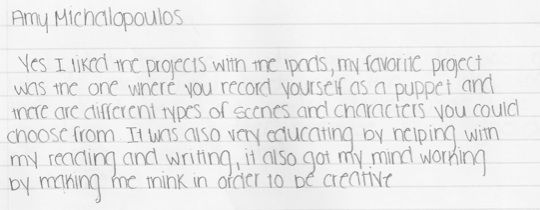 Amy Michalopoulos
Yes I liked the projects with the ipads, my favorite project
was the one where you record yourself as a puppet and
there are different types of scenes and characters you could
choose from. It was also very educating by helping with
my reading and writing, it also got my mind working
by making me think in order to be creative